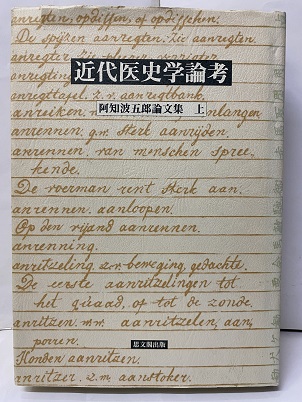 anrichten, opdissen, of opdisschen.
De spijzen aanregten. Zie aanregten.
近代医史学論考
阿知波五郎論文集 上
anregttafel. z.v. aanregtbank.
anrennen. g.w. Sterk aanrijden.
anrennen. van menschen spree-
kende.
De voerman rent sterk aan.
anrennen. aanloopen.
Op den vijand aanrennen.
anrenning.
anritzeling. z.v. beweging, gedachte.
De eerste aanritzelingen tot
het quaad, of tot de zonde.
anritzen. w.w. aanritzelen, aan,
porren.
Honden aanritzen.
anritzer. z.m. aanstoker.
思文閣出版